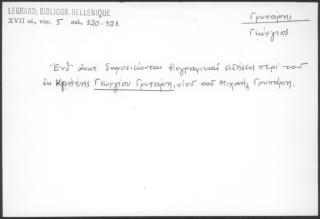 LEGRAND, BIBLIOGR. HELLENIQUE
XVII αἰ, τόμ. 5 σελ. 320-321.
Γρυπάρης
Γεώργιος
Ἔνθ' ἀνωτ. δημοσιεύονται βιογραφικαὶ εἰδήσεις περὶ τοῦ
ἐκ Κρήτης Γεωργίου Γρυπάρη, υἱοῦ τοῦ Μιχαὴλ Γρυπάρη.